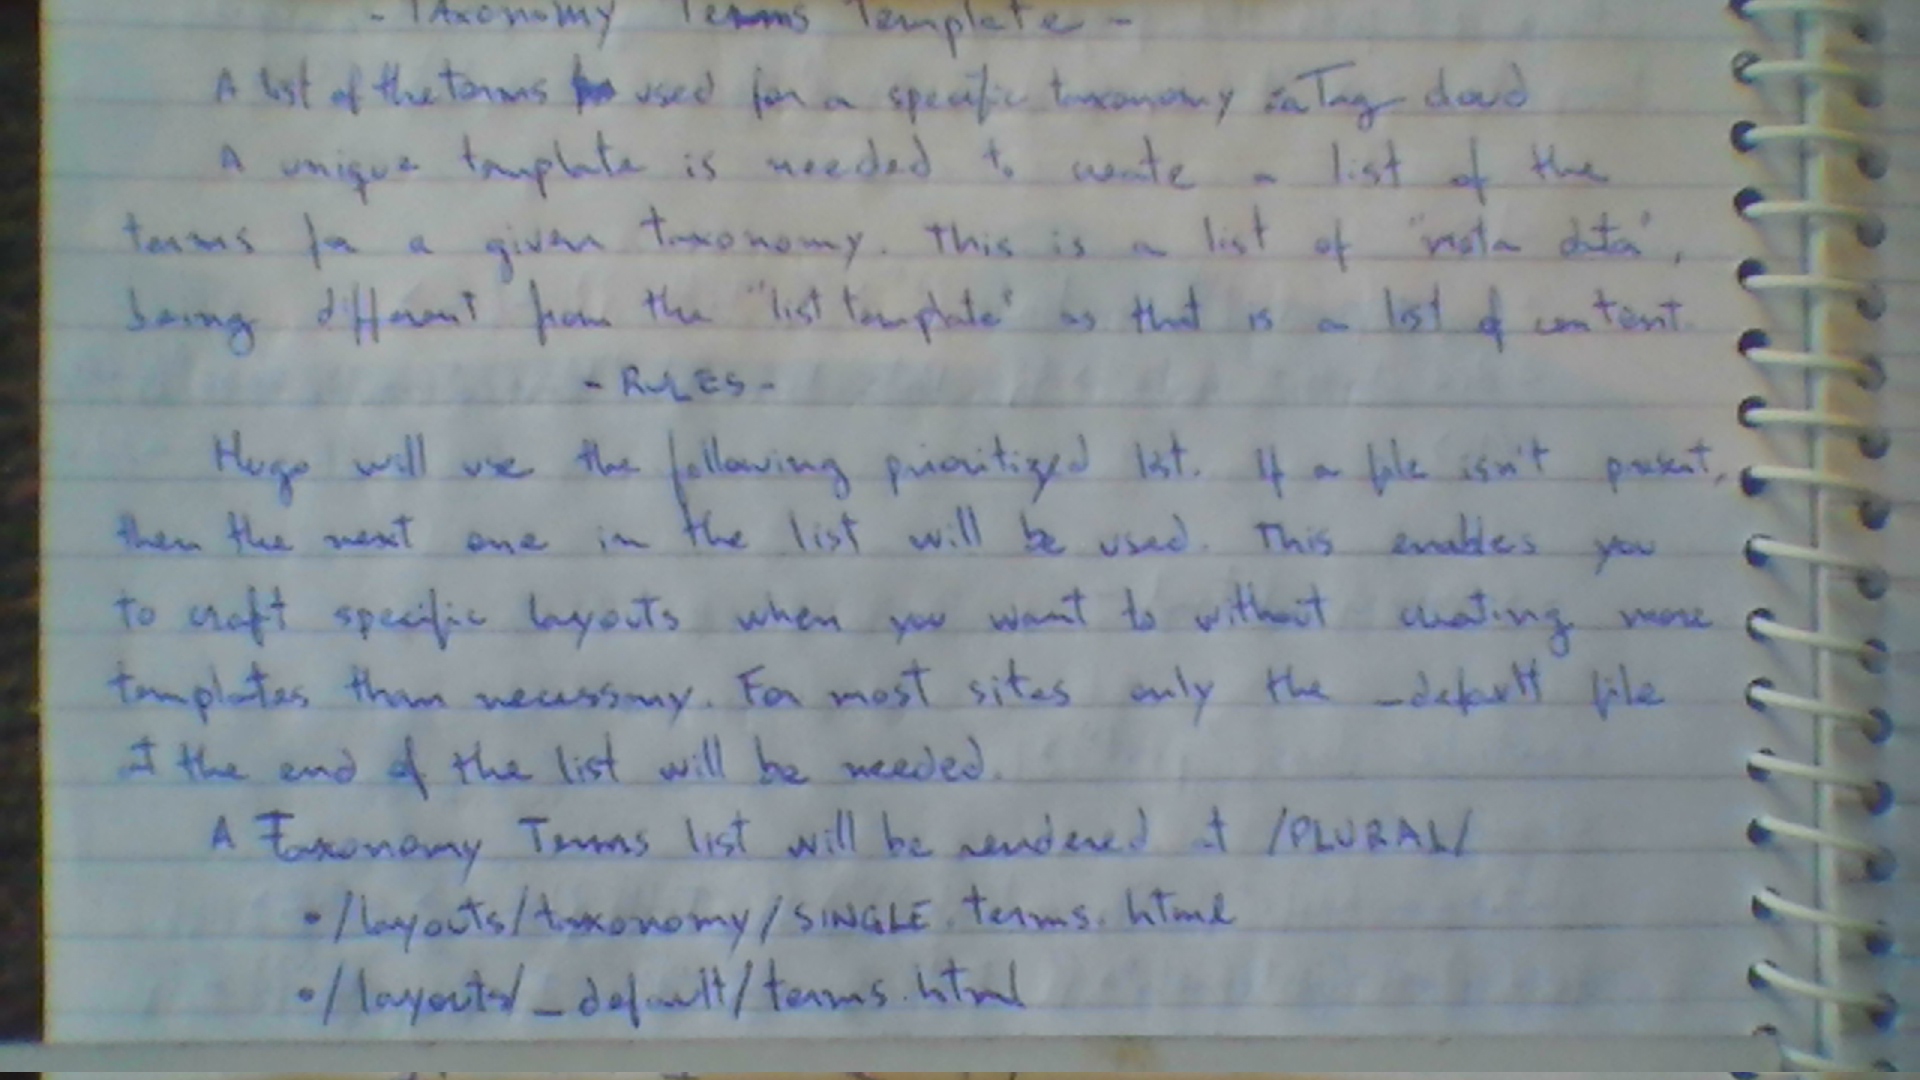 - TAxonomy Terms Template -
A list of the terms used for a specific taxonomy Tag cloud
A unique template is needed to create a list of the
terms for a given taxonomy. This is a list of "meta data",
being different from the "list template" as that is a list of content.
- RULES -
Hugo will use the following prioritized list. If a file isn't present,
then the next one in the list will be used. This enables you
to craft specific layouts when you want to without creating more
templates than necessary. For most sites only the _default file
at the end of the list will be needed.
A Taxonomy Terms list will be rendered at /PLURAL/
• /layouts/taxonomy/SINGLE.terms.html
• /layouts/_default/terms.html